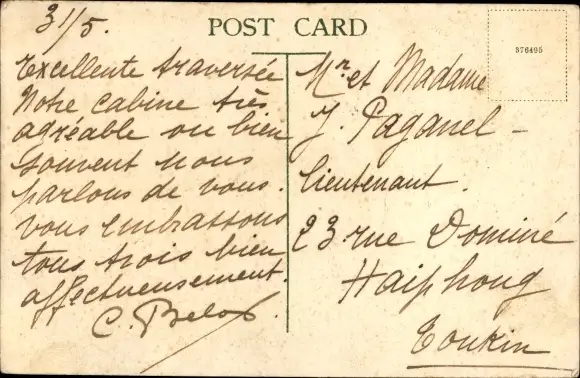 POST CARD
376495
31/5.
Excellente traversée
Notre cabine très
agréable ou bien
souvent nous
parlons de vous.
Vous embrassons
tous trois bien
affectueusement.
C.
Mr. et Madame
J. Paganel -
Lieutenant.
23 rue Dominé
Haiphong
Tonkin